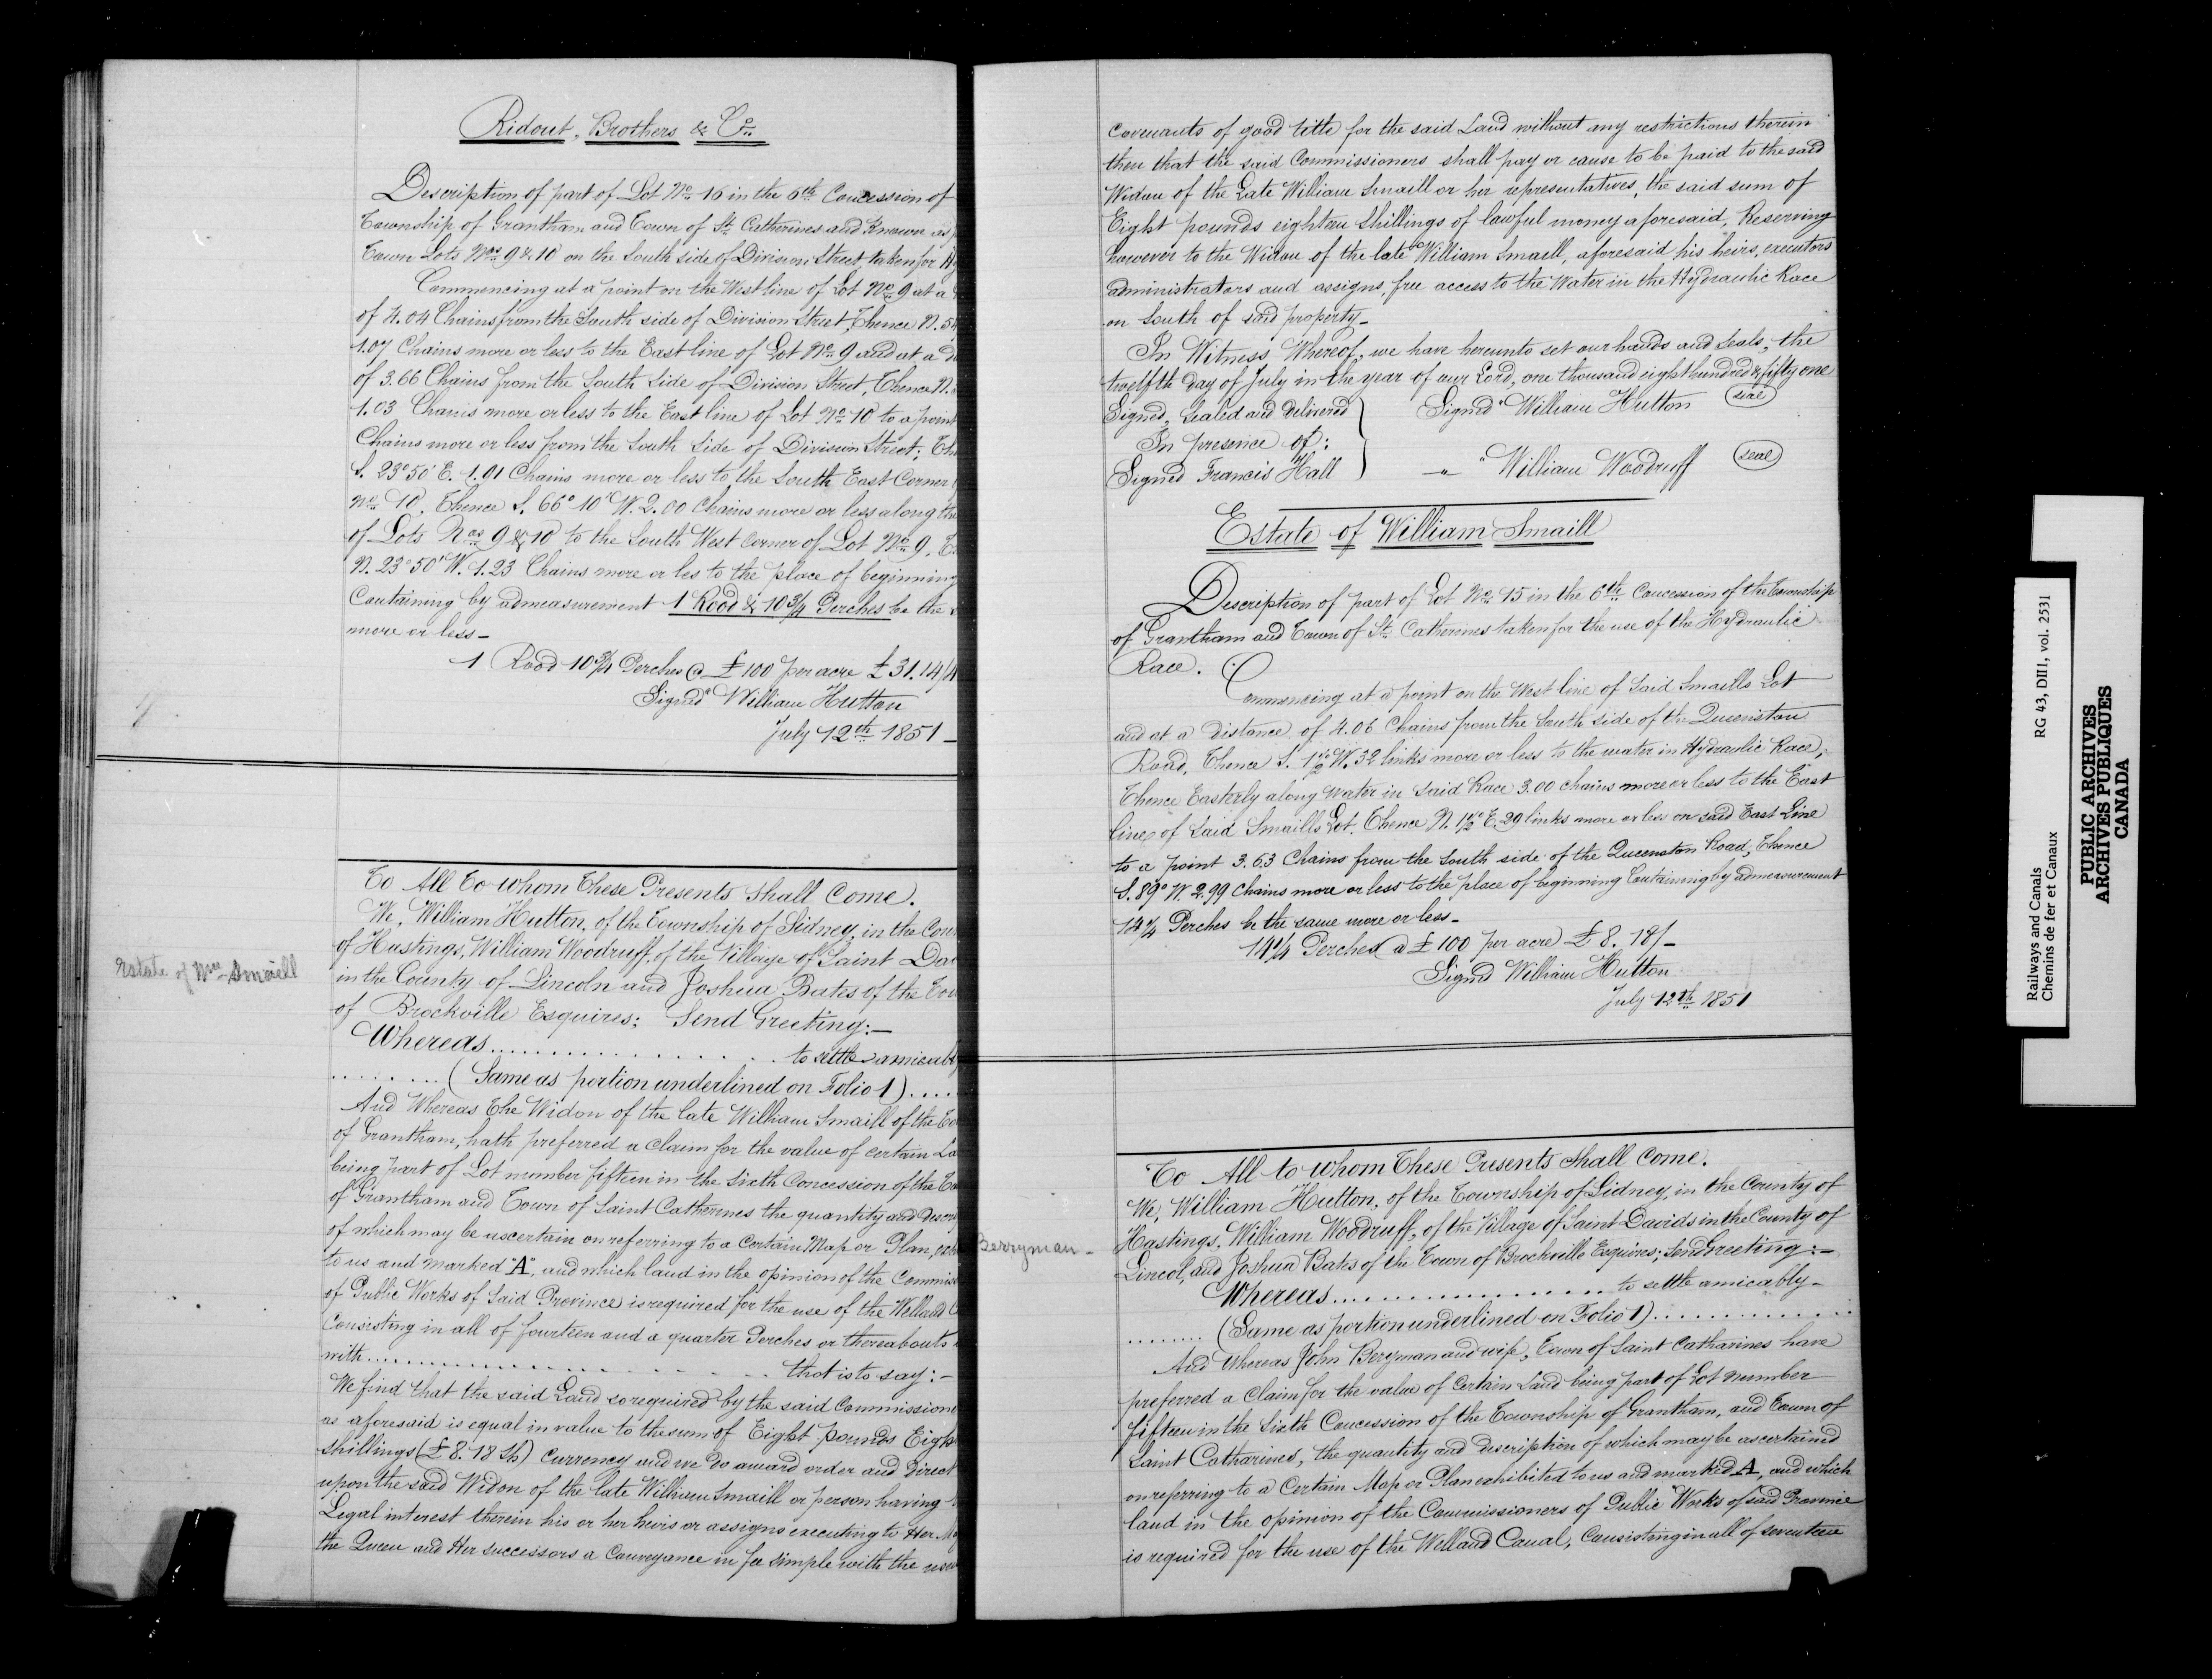 Ridout, Brothers & Co.
Description of part of Lot No. 16 in the 6th Concession of
Township of Grantham and Town of St. Catherines and Known as
Town Lots Nos. 9 & 10 on the South side of Division Street, taken for
Commencing at a point on the West line of Lot No. 9 at a
of 4.04 Chains from the South side of Division Street, Thence N. 54
1.07 Chains more or less to the East line of Lot No. 9 and at a
of 3.66 Chains from the South Side of Division Street, Thence N.
1.03 Chains more or less to the East line of Lot No. 10 to a point
Chains more or less from the South Side of Division Street; The
S. 23° 50' E. 1.01 Chains more or less to the South East Corner
No. 10, Thence S. 66° 10' W. 2.00 Chains more or less along the
of Lots Nos. 9 & 10 to the South West Corner of Lot No. 9.
N. 23° 50' W. 1.23 Chains more or les to the place of beginning
Containing by admeasurement 1 Rood & 10 3/4 Perches be the
more or less_
1 Rood 10 3/4 Perches @ £100 per acre £31.14/4
Signed "William Hutton
July 12th 1851_
To All To whom These Presents Shall Come.
We, William Hutton, of the Township of Sidney, in the Coun
of Hastings, William Woodruff, of the Village of Saint Dav
Estate of Wm Smaill
in the County of Lincoln and Joshua Bates of the Tow
of Brockville Esquires; Send Greeting:_
Whereas .................... to settle amicably
........ (Same as portion underlined on Folio 1) ....
And Whereas The Widow of the late William Smaill of the To
of Grantham, hath preferred a claim for the value of certain La
being part of Lot number fifteen in the Sixth Concession of the To
of Grantham and Town of Saint Catherines the quantity and Descri
of which may be ascertain on referring to a Certain Map or Plan, exh
to us and marked "A", and which land in the opinion of the Commiss
of Public Works of Said Province is required for the use of the Welland C
Consisting in all of fourteen and a quarter Perches or thereabouts
with .................... that is to say:-
We find that the said Land so required by the said Commissione
as aforesaid is equal in value to the sum of Eight pounds Eigh
shillings (£8.18 Sh) Currency and we do award order and direct
upon the said Widow of the late William Smaill or person having
Legal interest therein his or her heirs or assigns executing to Her Ma
the Queen and Her successors a Conveyance in fee simple with the usu
Covenants of good title for the said Land without any restrictions therein
then that the said Commissioners shall pay or cause to be paid to the said
Widow of the Late William Smaill or her representatives, the said sum of
Eight pounds eighteen Shillings of lawful money aforesaid, Reserving
however to the Widow of the late William Smaill, aforesaid his heirs, executors
administrators and assigns, free access to the Water in the Hydraulic Race
on South of said property_
In Witness Whereof, we have hereunto set our hands and Seals, the
twelfth day of July in the year of our Lord, one thousand eight hundred & fifty one
Signed, Sealed and Delivered } Signed "William Hutton (seal)
In presence of:
Signed Francis Hall } " "William Woodruff (seal)
Estate of William Smaill
Description of part of Lot No. 15 in the 6th Concession of the Township
of Grantham and Town of St. Catherines taken for the use of the Hydraulic
Race. Commencing at a point on the West line of Said Smaills Lot
and at a Distance of 4.06 Chains from the South side of the Queenston
Road, Thence S. 1 1/2° W. 32 links more or less to the water in Hydraulic Race,
Thence Easterly along water in Said Race 3.00 chains more or less to the East
line of Said Smaills Lot. Thence N. 1 1/2° E. 29 links more or less on said East Line
to a point 3.63 Chains from the South side of the Queenston Road, Thence
S. 89° W. 2.99 Chains more or less to the place of beginning Containing by admeasurement
14 1/4 Perches be the same more or less_
14 1/4 Perches @ £100 per acre £8. 18/_
Signed William Hutton
July 12th 1851
To All to whom These Presents shall come.
We, William Hutton, of the Township of Sidney, in the County of
Hastings, William Woodruff, of the Village of Saint Davids in the County of
Berryman_
Lincol, and Joshua Bates of the Town of Brockville Esquires; Send Greeting:_
Whereas .................... to settle amicably_
........ (Same as portion underlined on Folio 1) ............
And Whereas John Berryman and wife, Town of Saint Catharines have
preferred a Claim for the value of Certain Land being part of Lot number
fifteen in the Sixth Concession of the Township of Grantham, and Town of
Saint Catharines, the quantity and description of which may be ascertained
on referring to a Certain Map or Plan exhibited to us and marked A, and which
land in the opinion of the Commissioners of Public Works of said Province
is required for the use of the Welland Canal, Consisting in all of seventeen
Railways and Canals RG 43, DIII, vol. 2531
Chemins de fer et Canaux
PUBLIC ARCHIVES
ARCHIVES PUBLIQUES
CANADA